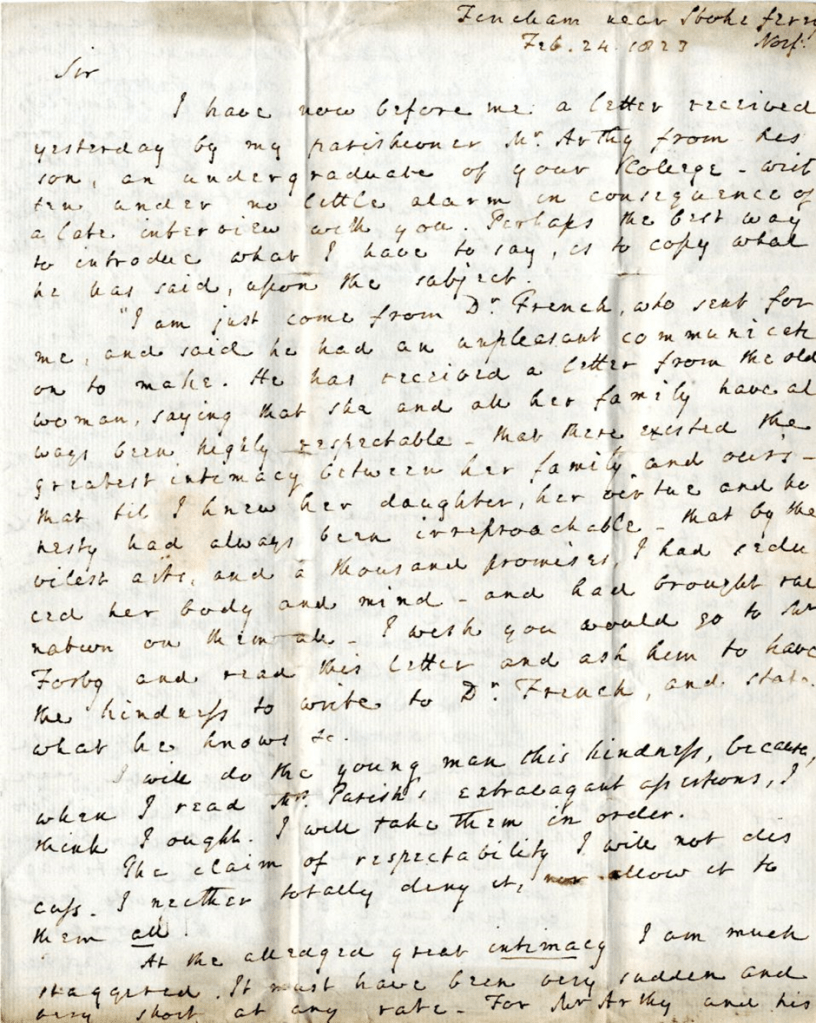 Fincham near Stoke ferry
Feb. 24. 1823 Norf.
Sir
I have now before me a letter received
yesterday by my parishioner Mr. Arthy from his
son, an undergraduate of your College - writ
ten under no little alarm in consequence of
a late interview with you. Perhaps the best way
to introduce what I have to say, is to copy what
he has said, upon the subject.
"I am just come from Dr. French, who sent for
me, and said he had an unpleasant communicati
on to make. He has received a letter from the old
woman, saying that she and all her family have al
ways been highly respectable - that there existed the
greatest intimacy between her family and ours -
that til I knew her daughter, her virtue and ho
nesty had always been irreproachable - that by the
vilest arts, and a thousand promises, I had sedu
ced her body and mind - and had brought rui
nation on them all - I wish you would go to Mr
Forby and read this letter and ask him to have
the kindness to write to Dr. French, and state
what he knows &c.
I will do the young man this kindness, because,
when I read Mrs. Parish's extravagant assertions, I
think I ought. I will take them in order.
The claim of respectability I will not dis
cuss. I neither totally deny it, nor allow it to
them all.
At the alledged great intimacy I am much
staggered. It must have been very sudden and
very short at any rate. For Mr Arthy and his